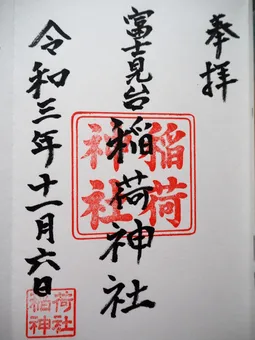 奉拝
富士見台
稲荷神社
稲荷神社
令和三年十一月六日
稲荷神社